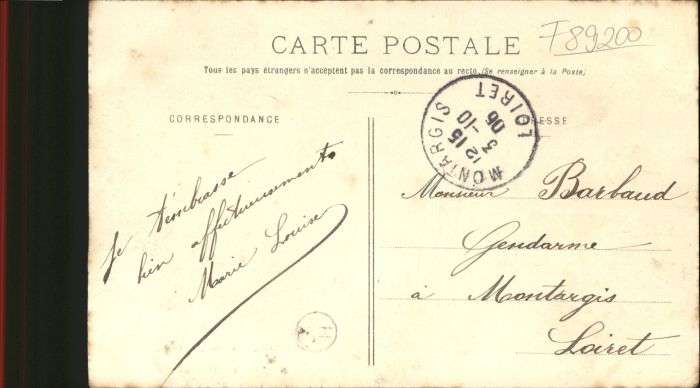 CARTE POSTALE
F89200
Tous les pays étrangers n'acceptent pas la correspondance au recto. (Se renseigner à la Poste)
CORRESPONDANCE
RESSE
MONTARGIS
LOIRET
12 15
3-10
06
Je t'embrasse
bien affectueusement
Marie Louise
Monsieur Barbaud
Gendarme
à Montargis
Loiret